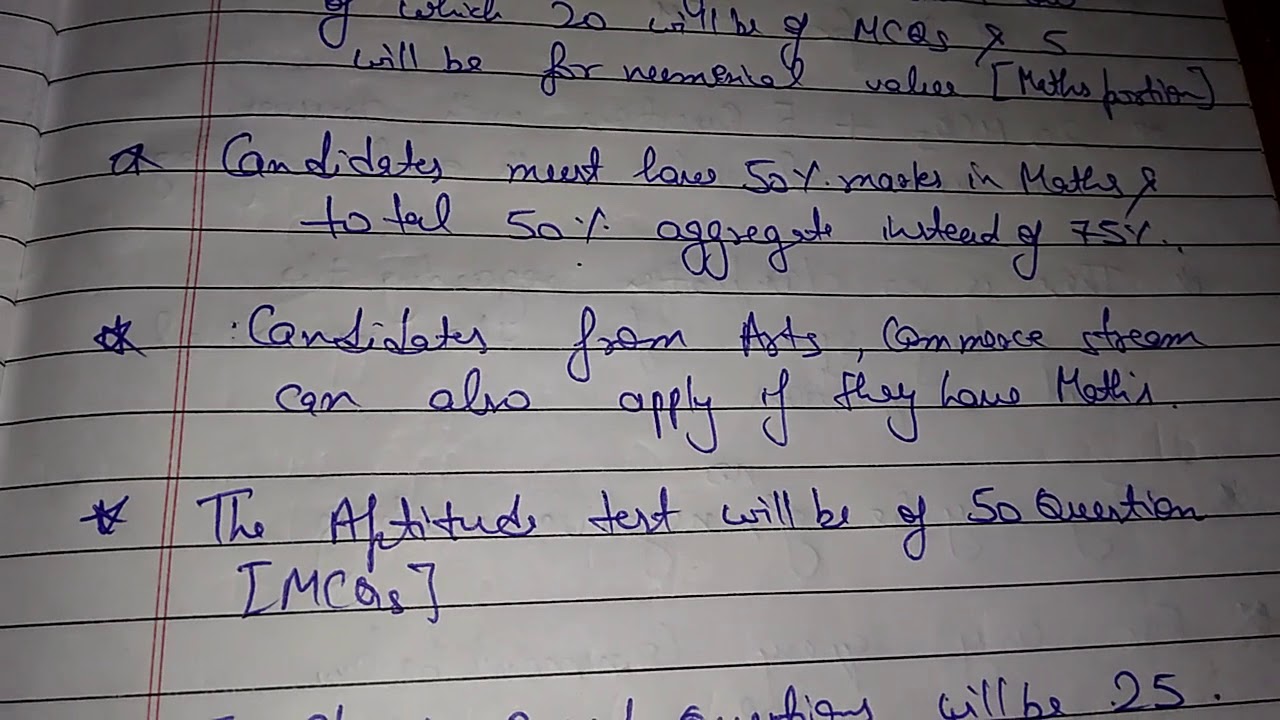 of which 20 will be of MCQs & 5
will be for neemerical values [Maths portion]
☆ Candidates must have 50% marks in Maths &
total 50% aggregate instead of 75%.
☆ Candidates from Arts, Commerce stream
can also apply if they have Maths.
☆ The Aptitude test will be of 50 Question
[MCQs]
Questions will be 25.